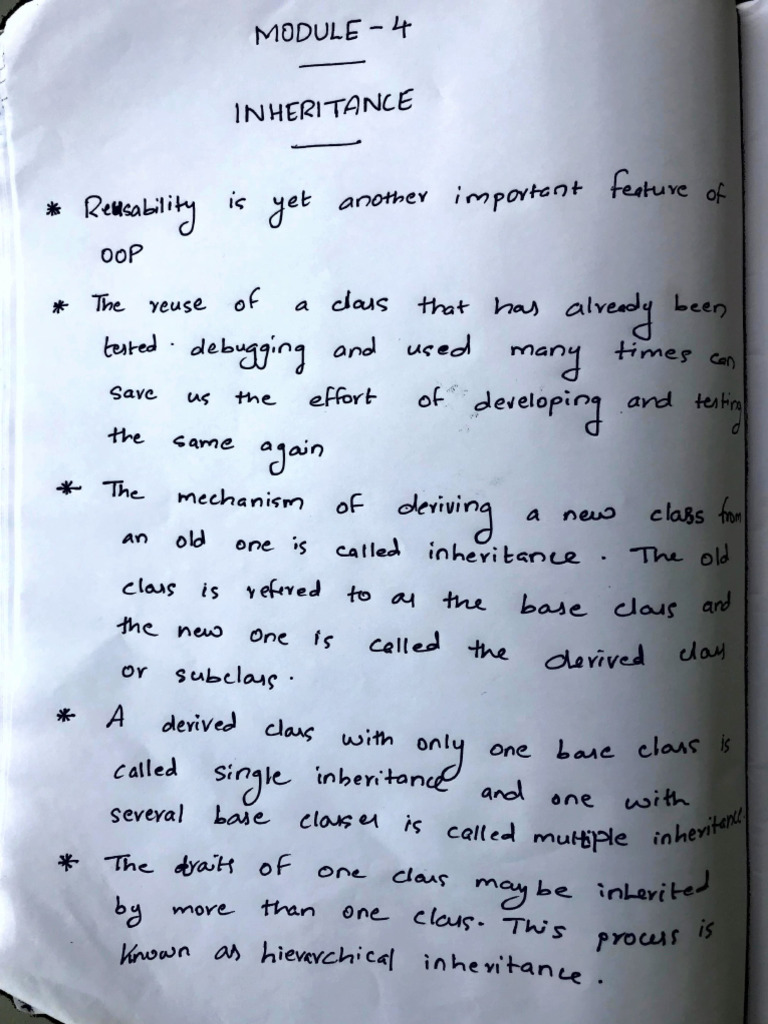 MODULE - 4
INHERITANCE
* Reusability is yet another important feature of
OOP
* The reuse of a class that has already been
tested. debugging and used many times can
save us the effort of developing and testing
the same again
* The mechanism of deriving a new class from
an old one is called inheritance. The old
class is refered to as the base class and
the new one is called the derived class
or subclass.
* A derived class with only one base class is
called single inheritance and one with
several base classes is called multiple inheritance.
* The traits of one class may be inherited
by more than one class. This process is
known as hierarchical inheritance.